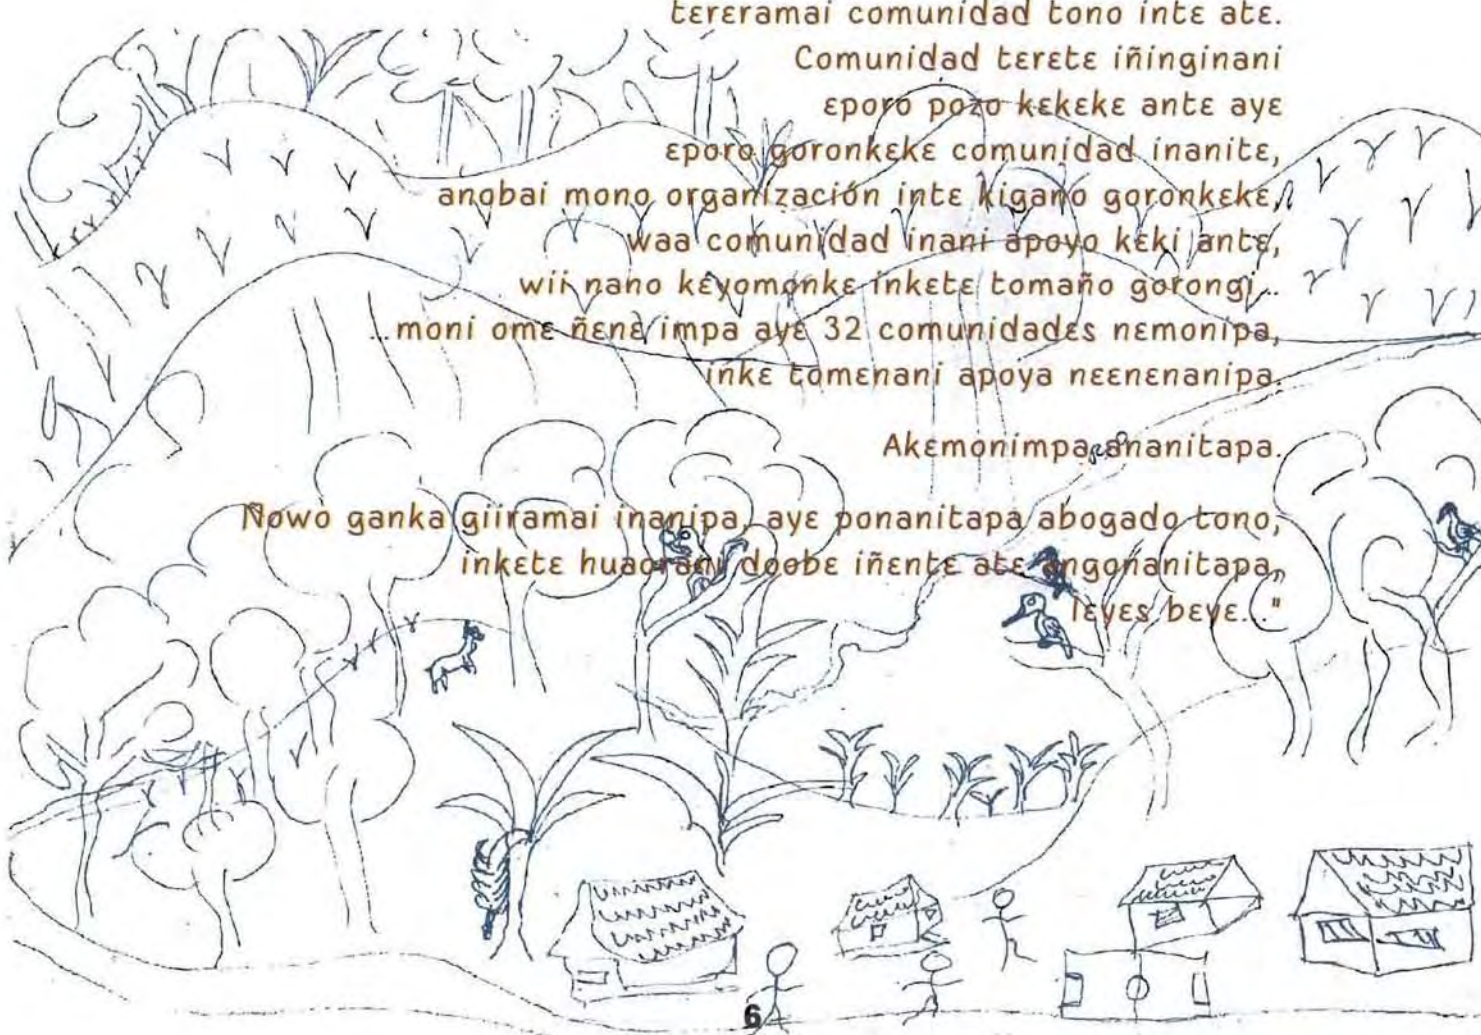 tεrεramai comunidad tono intε atε.
Comunidad tεrεtε iñinginani
εporo pozo kεkεkε antε ayε
εporo goronkεkε comunidad inanitε,
anobai mono organización intε kigano goronkεkε,
waa comunidad inani apoyo kεki antε,
wii nano kεyomonkε inkεtε tomaño gorongi...
...moni omε ñεnε impa ayε 32 comunidadεs nεmonipa,
inkε tomεnani apoya nεεnεnanipa.
Akεmonimpa ananitapa.
Ñowo ganka giiramai inanipa, ayε ponanitapa abogado tono,
inkεtε huaorani doobε iñεntε atε angonanitapa,
lεyεs bεyε..."
6